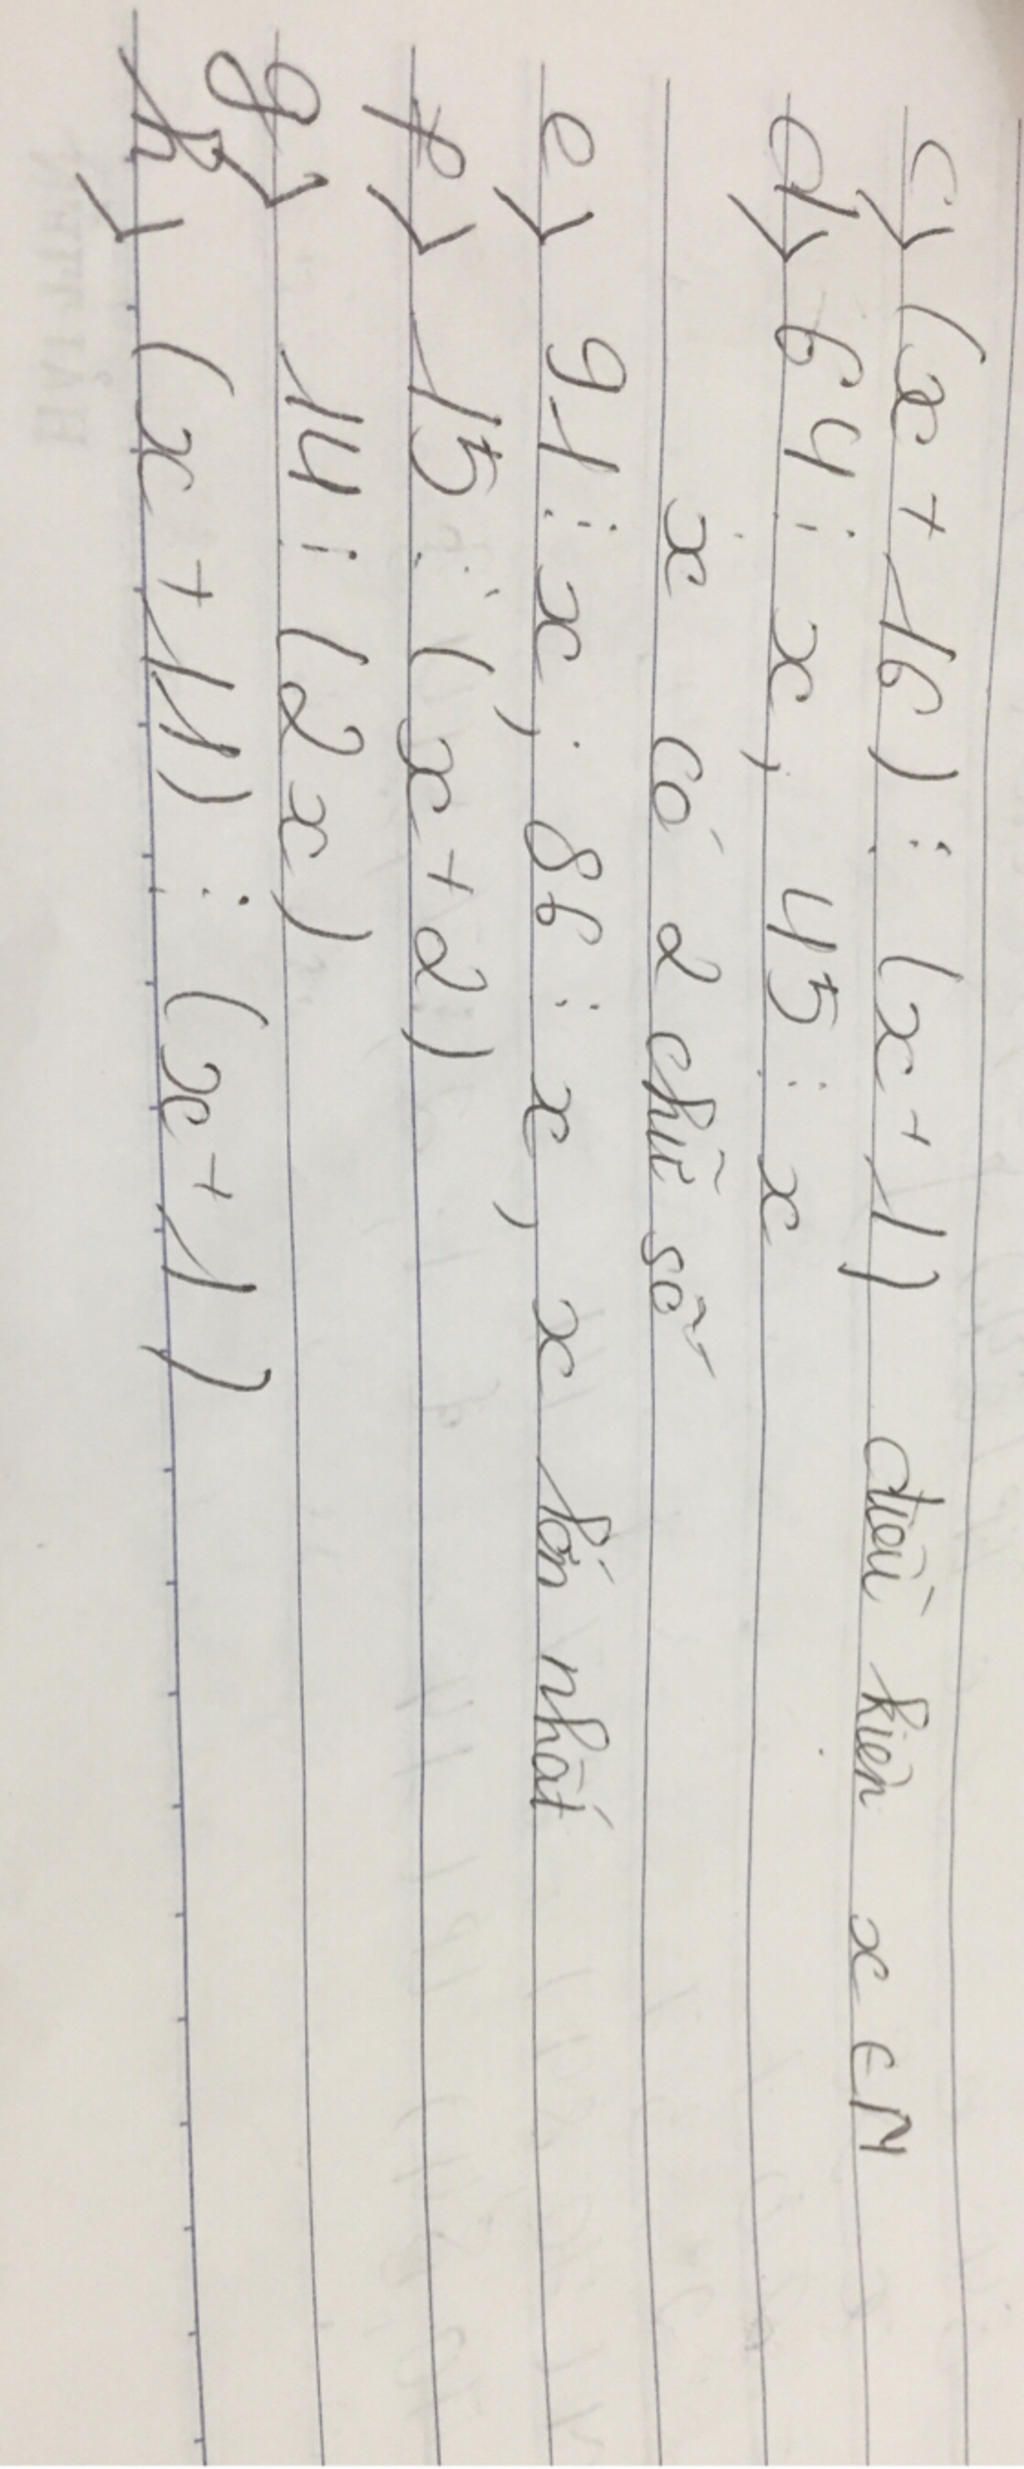 c) (x + 16) ⋮ (x + 1) điều kiện x ∈ N
d) 64 ⋮ x, 45 ⋮ x
x có 2 chữ số
e) 91 ⋮ x, 86 ⋮ x, x lớn nhất
f) 15 ⋮ (x + 2)
g) 14 ⋮ (2x)
h) (x + 11) ⋮ (x + 1)